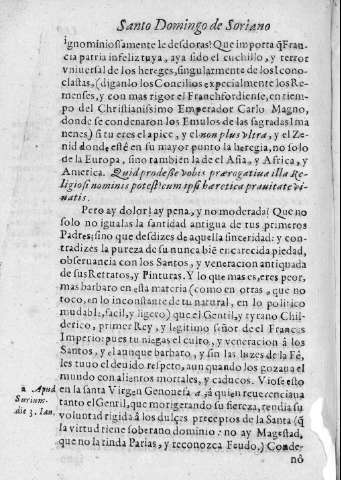 Santo Domingo de Soriano
ignominiosamente le desdoras! Que importa q̃ Fran-
cia patria infeliz tuya, aya sido el cuchillo, y terror
vniuersal de los hereges, singularmente de los Icono-
clastas, (diganlo los Concilios expecialmente los Re-
menses, y con mas rigor el Franchfordiense, en tiem-
po del Christianissimo Emperador Carlo Magno,
donde se condenaron los Emulos de las sagradas Ima
nenes) si tu eres el apice, y el non plus vltra, y el Ze-
nid donde esté en su mayor punto la heregia, no solo
de la Europa, sino tambien la de Asia, y Africa, y
America. Quid prodesse vobis prærogatiua illa Re-
ligiosi nominis potest cum ipsi hæretica prauitate vi-
uatis.
Pero ay dolor! ay pena, y no moderada! Que no
solo no igualas la santidad antigua de tus primeros
Padres; sino que desdizes de aquella sinceridad: y con-
tradizes la pureza de su nunca biē encarecida piedad,
obseruancia con los Santos, y veneracion antiquada
de sus Retratos, y Pinturas. Y lo que mas es, eres peor,
mas barbaro en esta materia (como en otras, que no
toco, en lo inconstante de tu natural, en lo politico
mudable, facil, y ligero) que el Gentil, y tyrano Chil-
derico, primer Rey, y legitimo señor de el Frances
Imperio: pues tu niegas el culto, y veneracion à los
Santos, y el aunque barbaro, y sin las luzes de la Fé,
les tuuo el deuido respeto, aun quando los gozaua el
mundo con alientos mortales, y caducos. Viose esto
en la santa Virgen Genouefa a, à quien reuerenciaua
tanto el Gentil, que morigerando su fiereza, rendia su
voluntad rigida à los dulces preceptos de la Santa (q̃
la virtud tiene soberano dominio: no ay Magestad,
que no la rinda Parias, y reconozca Feudo.) Conde-
nò
a Apud
Surium.
die 3. Ian.